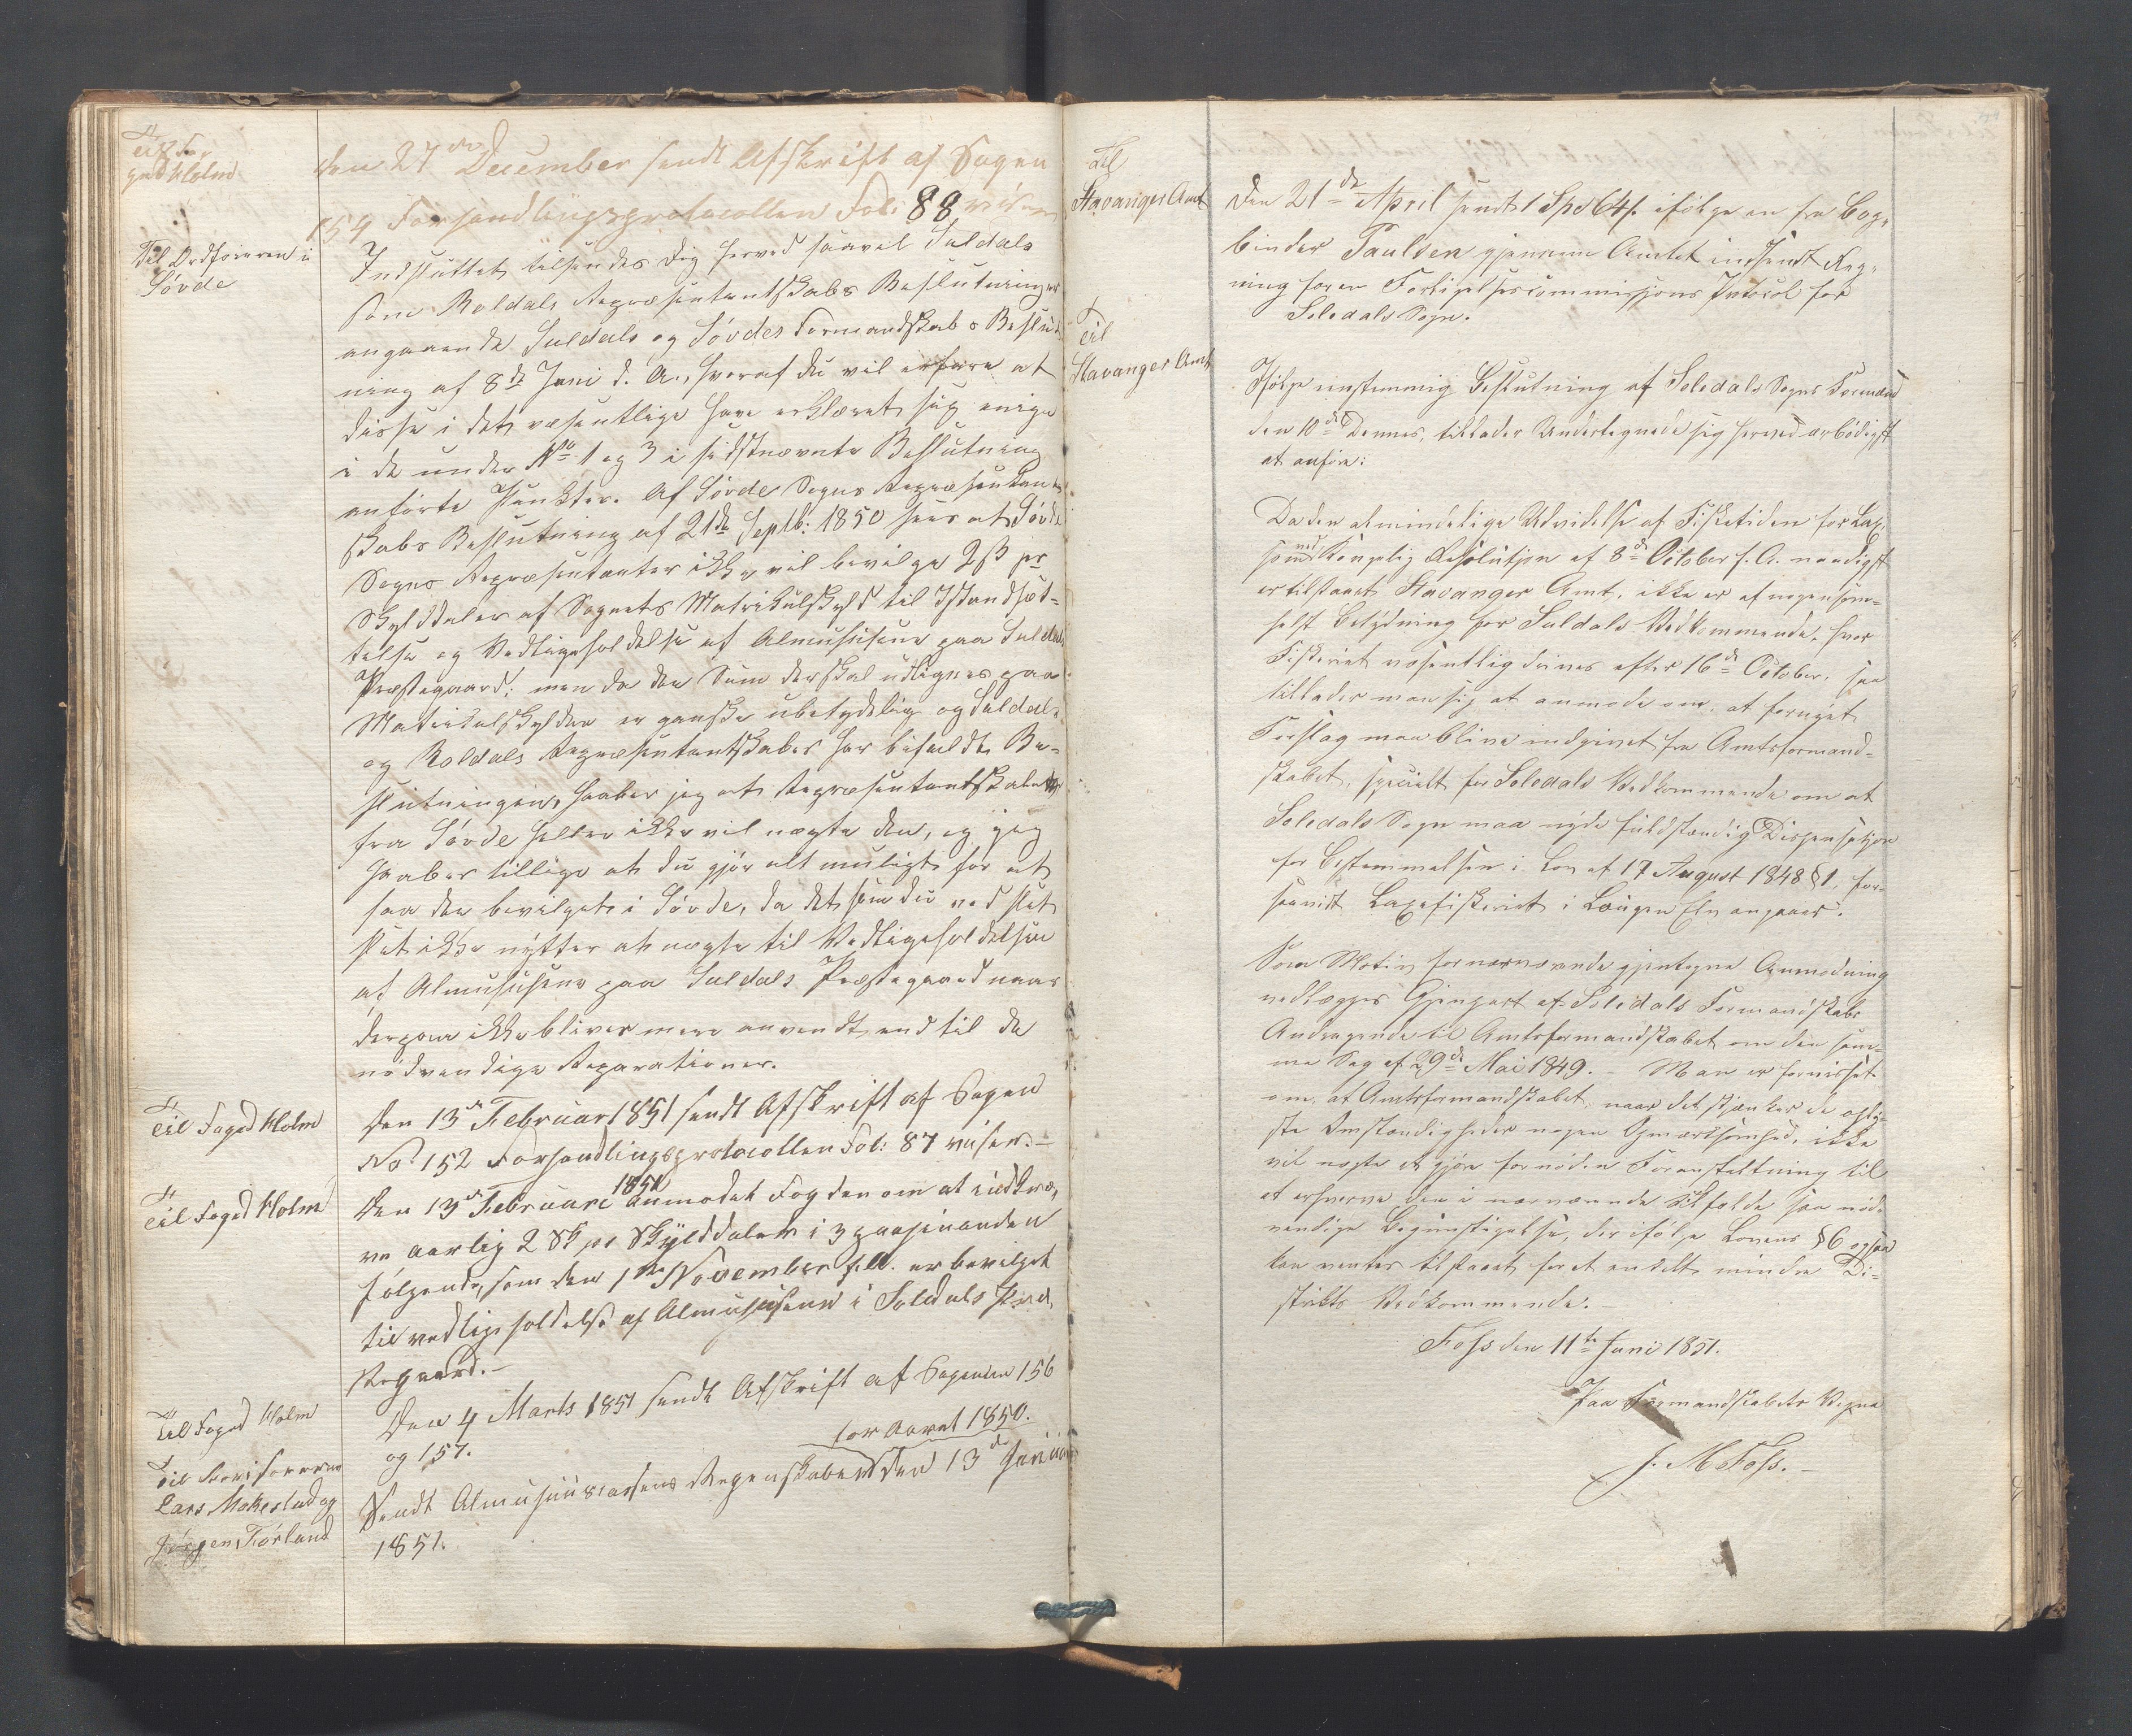 Til Fo-
ged Holm
den 27de December sendt Afskrift af Sagen
154 Forhandlingsprotocollen Fol: 88 viser
Til Ordføreren i
Søvde
Indsluttet tilsendes Dig herved saavel Suldals
som Roldals Repræsentantskabs Beslutninger
angaaende Suldals og Søvdes Formandskabs Beslut
ning af 8de Juni d. A., hvoraf du vil erfare at
disse i det væsentlige have erklæret sig enige
i de under No 1 og 3 i sidstnævnte Beslutning
anførte Punkter. Af Søvde Sogns Repræsentant
skabs Beslutning af 21de Septb: 1850 sees at Søvde
Sogns Repræsentanter ikke vil bevilge 2 ß pr
Skylddaler af Sognets Matrikulskyld til Istandsæt-
telse og Vedligeholdelse af Almushusene paa Suldals
Præstegaard; men da den Sum der skal udlignes paa
Matrikulskylden er ganske ubetydelig og Suldals
og Roldals Repræsentantskaber har bifaldt Be-
slutningen, haaber jeg at Repræsentantskabet
fra Søvde heller ikke vil nægte den, og jeg
haaber tillige at du gjør alt muligt for at
faa den bevilget i Søvde, da det som du ved slet
slet ikke nytter at nægte til Vedligeholdelsen
af Almushusene paa Suldals Præstegaard naar
dertil ikke bliver mere anvendt end til de
nødvendige Reparationer.
Til Foged Holm
Den 13de Februar 1851 sendt Afskrift af Sagen
No. 152 Forhandlingsprotocollen Fol: 87 viser.-
Til Foged Holm
Den 13de Februari 1851 anmodet Fogden om at indkræ-
ve aarlig 2 Sk pr Skylddaler i 3 paa hinanden
følgende, som den 1ste November f. A. er bevilget
til vedligeholdelse af Almushusene i Soledals Præ-
stegaard.-
Til Foged Holm
Den 4 Marts 1851 sendt Afskrift af Sagerne 156
og 157.
for Aaret 1850.
Til Revisorerne
Lars Mokestad og
Jørgen Førland
Sendt Almushuuscassens Regenskaber den 13de Januar
1851.
Til
Stavanger Amt
Den 21de April sendt 1 Spd 64 s. ifølge en fra Bog-
binder Paulsen gjennem Amtet indsendt Reg-
ning for en Forligelsescommissions Protocol for
Soledals Sogn.
Til
Stavanger Amt
Ifølge eenstemmig Beslutning af Soledals Sogns Formænd
den 10de Dennes, tillader Undertegnede sig herved ærbødigst
at anføre:
Da den almindelige Udvidelse af Fisketiden for Lax,
som ved Kongelig Resolution af 8de October f. A. naadigst
er tilstaaet Stavanger Amt, ikke er af nogensom-
helst Betydning for Suldals Vedkommende, hvor
Fiskeriet væsentlig drives efter 16de October, saa
tillader man sig at anmode om, at fornyet
Forslag maa blive indgivet fra Amtsformand-
skabet, specielt for Soledals Vedkommende om at
Soledals Sogn maa nyde fuldstændig Dispensation
for Bestemmelsen i Lov af 17 August 1848 § 1, for-
saavidt Laxefiskeriet i Laugen Elv angaaer.
Som Motiv for nærværende gjentagne Anmodning
vedlægges Gjenpart af Soledals Formandskabs
Andragende til Amtsformandskabet om den sam-
me Sag af 29de Mai 1849. - Man er forvisset
om, at Amtsformandskabet, naar det skjænker de oply-
ste Omstændigheder nogen Opmærksomhed, ikke
vil nægte at gjøre fornøden Foranstaltning til
at erhverve den i nærværende Tilfælde saa nød-
vendige Begunstigelse, der ifølge Lovens § 6 ogsaa
kan ventes tilstaaet for et enkelt mindre Di-
strikts Vedkommende. -
Foss den 11te Juni 1851.
Paa Formandskabets Vegne
J. M Foss. -